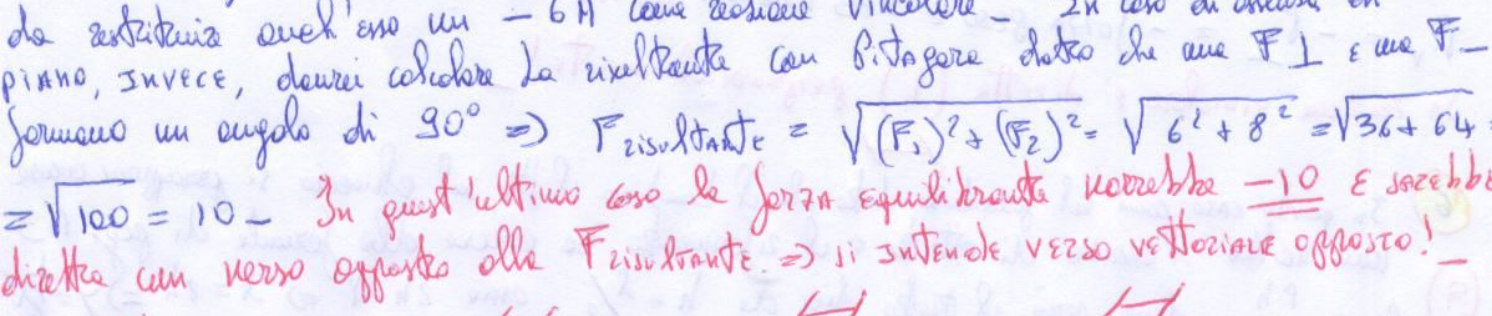 da restituire anch'esso un – 6 N come reazione vincolare –
PIANO, INVECE, dovrei calcolare la risultante con Pitagora dato che una F ⊥ e una F –
formano un angolo di 90° => F risultante = √(F₁)² + (F₂)² = √6² + 8² = √36 + 64 =
= √100 = 10 – In quest'ultimo caso la forza equilibrante varrebbe –10 e sarebbe
diretta con verso opposto alla F risultante. => si intende verso vettoriale opposto! –